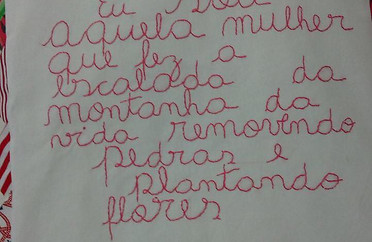 Eu sou
aquela mulher
que fez a
escalada da
montanha da
vida removendo
pedras e
plantando
flores